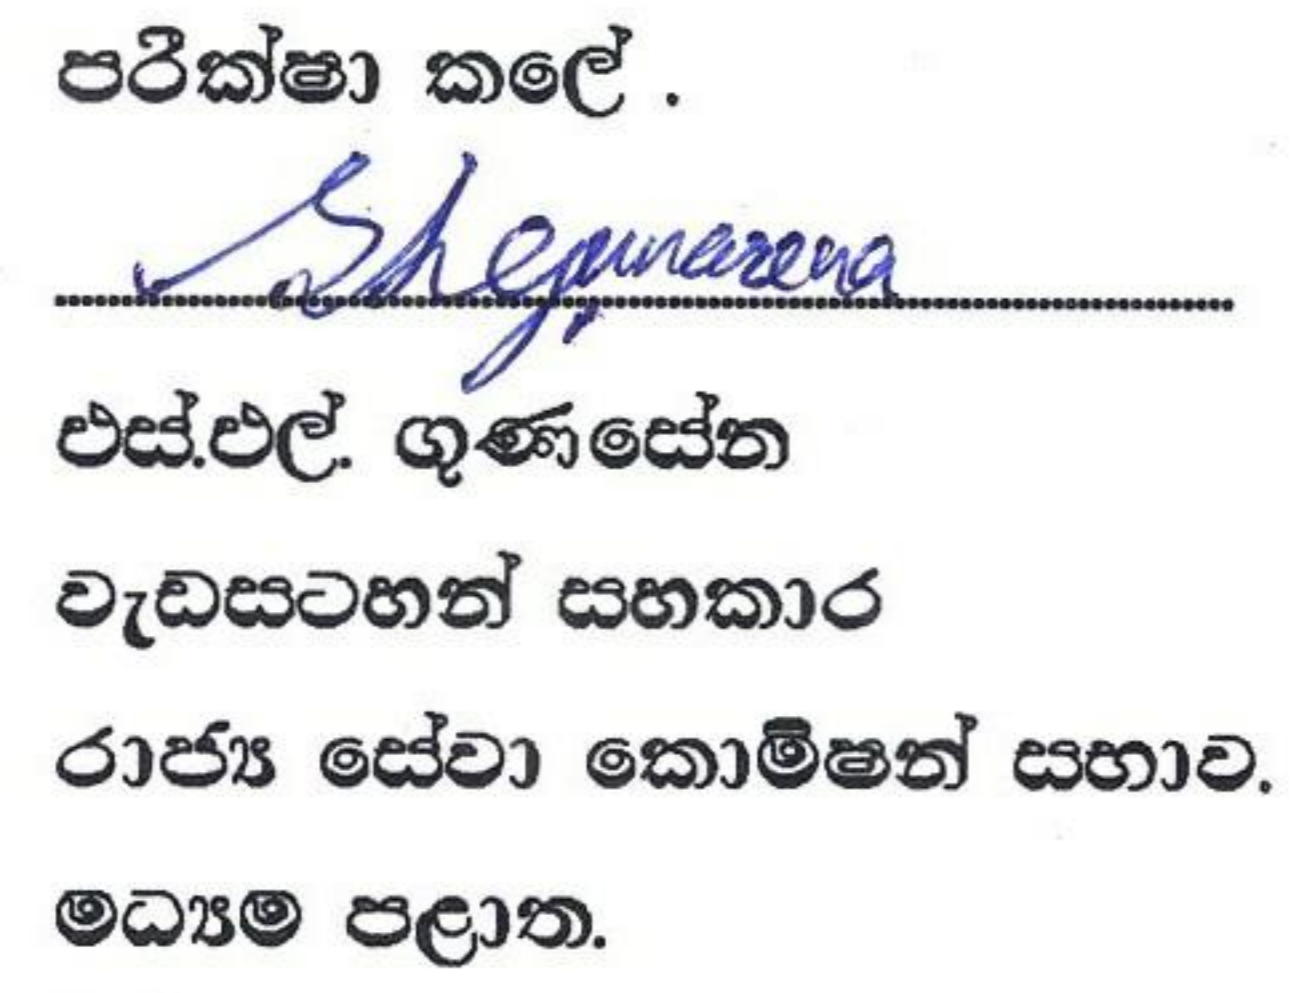 පරීක්ෂා කලේ .
එස්.එල්. ගුණසේන
වැඩසටහන් සහකාර
රාජ්‍ය සේවා කොමිෂන් සභාව.
මධ්‍යම පළාත.